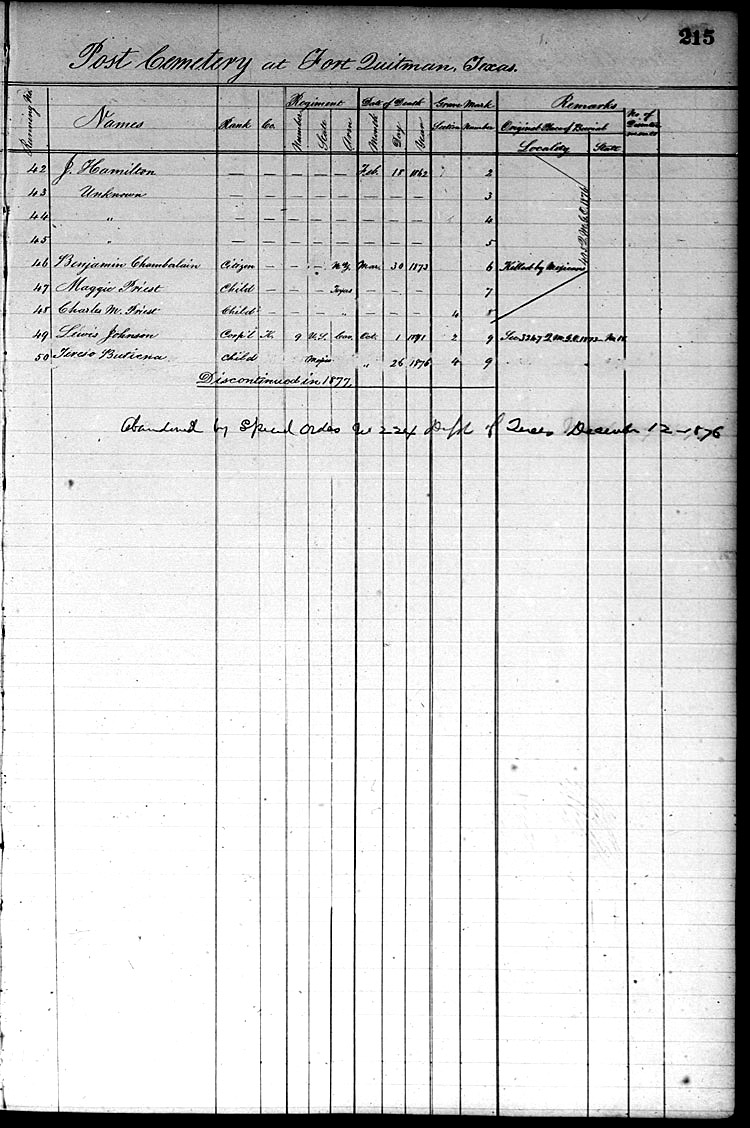 215
Post Cemetery at Fort Quitman, Texas.
Running No. Names Rank Co. Regiment Date of Death Grave Mark Remarks
Number State Arm Month Day Year Section Number Original Place of Burial No. of
Locality State
42 J. Hamilton — — — — — Feb. 18 1862 2
43 Unknown — — — — — — — — 3
44 " — — — — — — — — 4
45 " — — — — — — — — 5
46 Benjamin Chamberlain Citizen — — — N.Y. Mar. 30 1873 6 Killed by Mexicans
47 Maggie Priest Child — — — Texas — — — 7
48 Charles M. Priest Child — — — " — — — 4 8
405 Q.M.G.O. 1876
49 Lewis Johnson Corp'l K. 9 U.S. Cav. Oct. 1 1891 2 9 See 3247 Q.M.G.O. 1892
50 Child Mexico " 26 1876 4 9
Discontinued in 1877.
Abandoned by Special Orders No 224 Dept of Texas December 12-1876